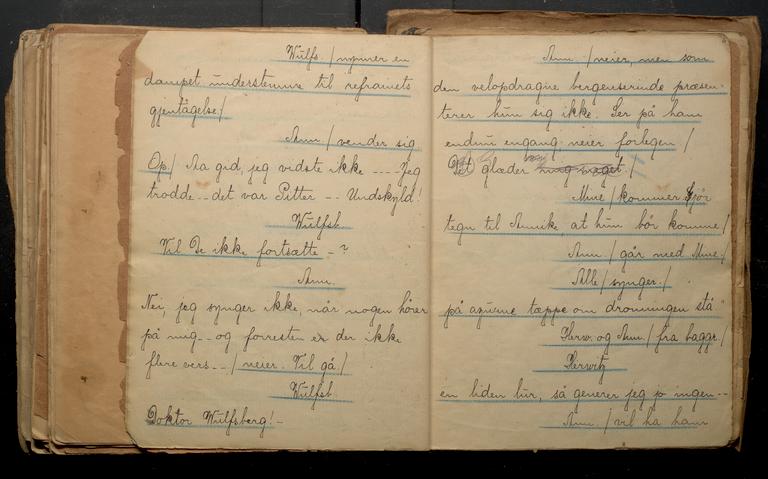 Wulfs / nynner en
dæmpet understemme til refrainets
gjentagelse /
Ann / vender sig
Op / Aa gid, jeg vidste ikke ---- Jeg
trodde -- det var Pitter -- Undskyld!
Wulfsb.
Vil De ikke fortsætte - ?
Ann.
Nei, jeg synger ikke, når nogen hører
på mig -- og forresten er der ikke
flere vers -- / neier. Vil gå /
Wulfsb.
Doktor Wulfsberg! -
Ann / neier, men som
den velopdragne bergenserinde præsen-
terer hun sig ikke. Ser på ham
endnu engang. neier forlegen /
Det glæder mig meget. /
Mine / kommer. Gjør
tegn til Annike at hun bør komme /
Ann. / går med Mine. /
Alle / synger. /
på azurne tæppe om dronningen stå"
Herw. og Ann. / fra bagge. /
Herwitz
en liden lur, så generer jeg jo ingen --
Ann. / vil ha ham